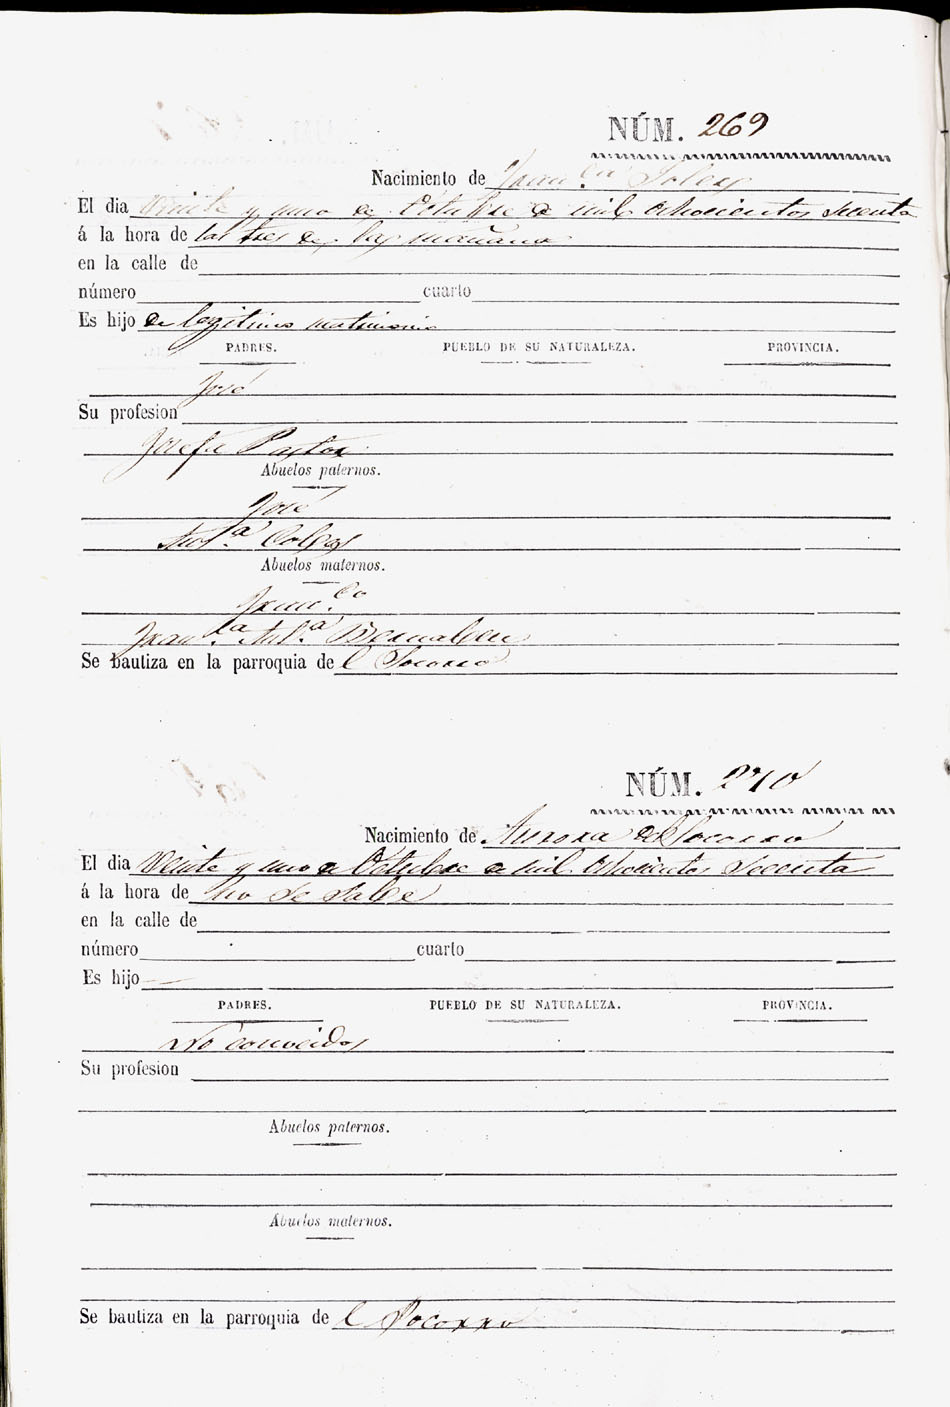 NÚM. 269
Nacimiento de Fran.co
El dia veinte y uno de Octubre de mil ochocientos secenta
á la hora de las tres de la mañana
en la calle de
número cuarto
Es hijo de legitimo matrimonio
PADRES. PUEBLO DE SU NATURALEZA. PROVINCIA.
José
Su profesion
Josefa Pastor
Abuelos paternos.
José
Ant.a
Abuelos maternos.
Fran.co
Fran.ca Ant.a
Se bautiza en la parroquia de l Socorro
NÚM. 270
Nacimiento de Aurora del Socorro
El dia veinte y uno de Octubre de mil ochocientos secenta
á la hora de no se sabe
en la calle de
número cuarto
Es hijo
PADRES. PUEBLO DE SU NATURALEZA. PROVINCIA.
No conocidos
Su profesion
Abuelos paternos.
Abuelos maternos.
Se bautiza en la parroquia de l Socorro